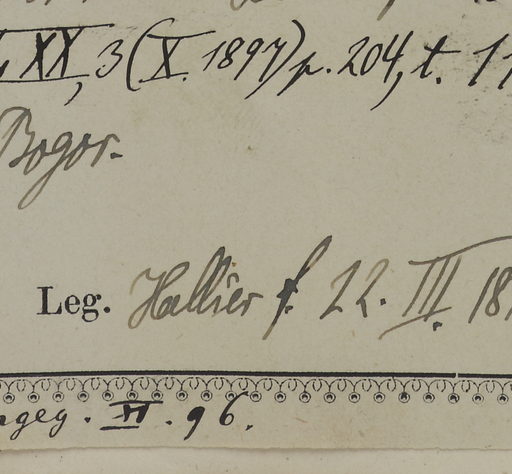 XX, 3 (X. 1897) p. 204, t. 11
Bogor.
Leg. Hallier f. 22. III. 18
. II. 96.